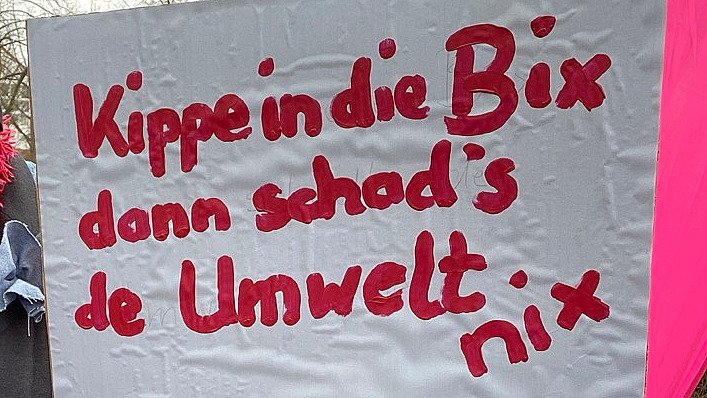 Kippe in die Bix
dann schad's
de Umwelt
nix